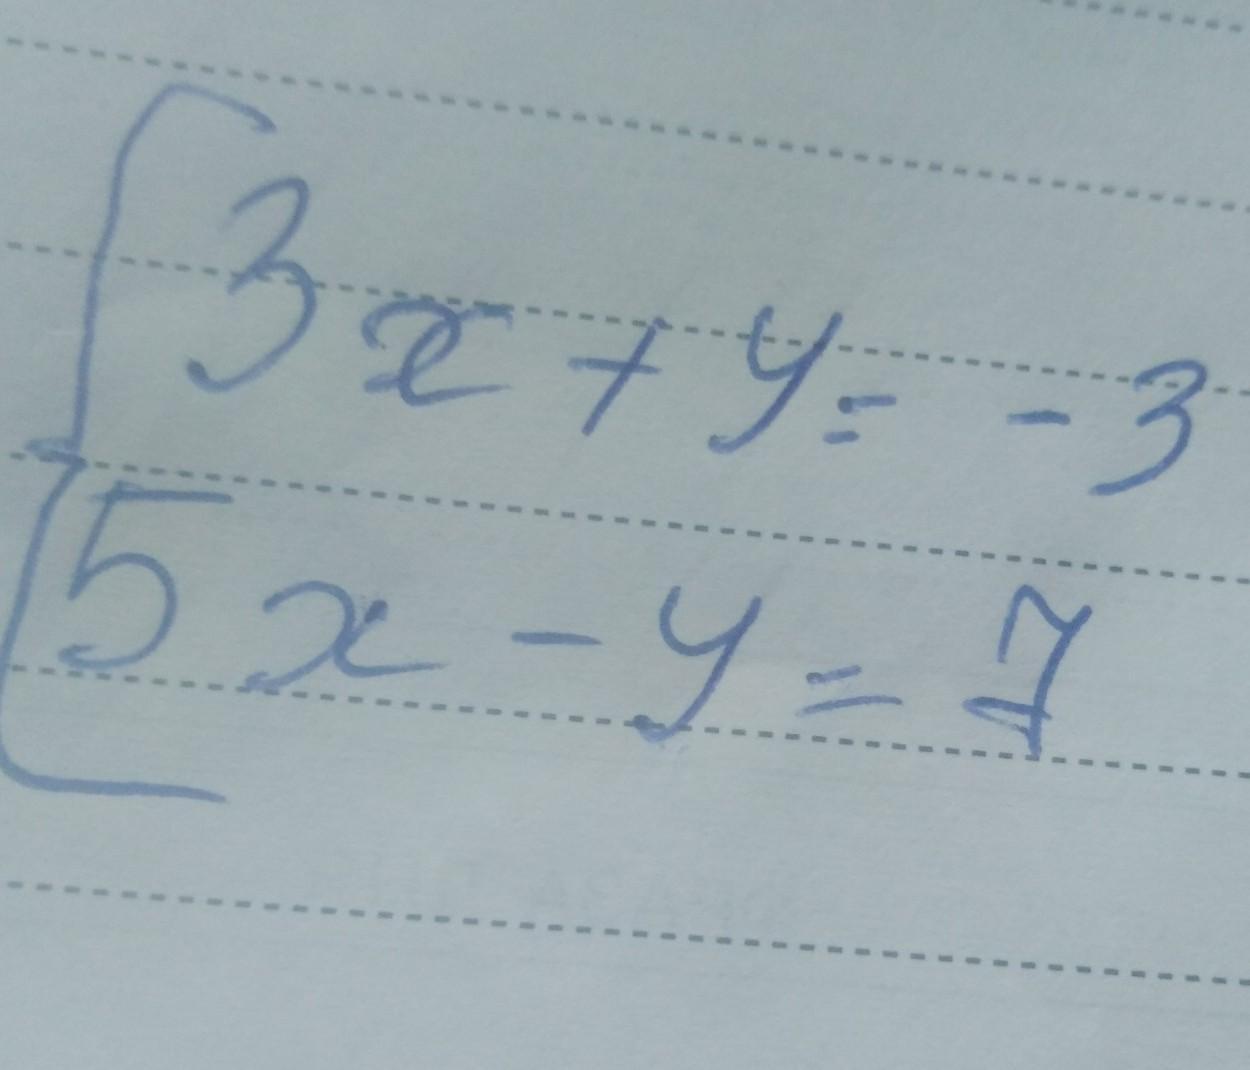 3x + y = - 3
5x - y = 7